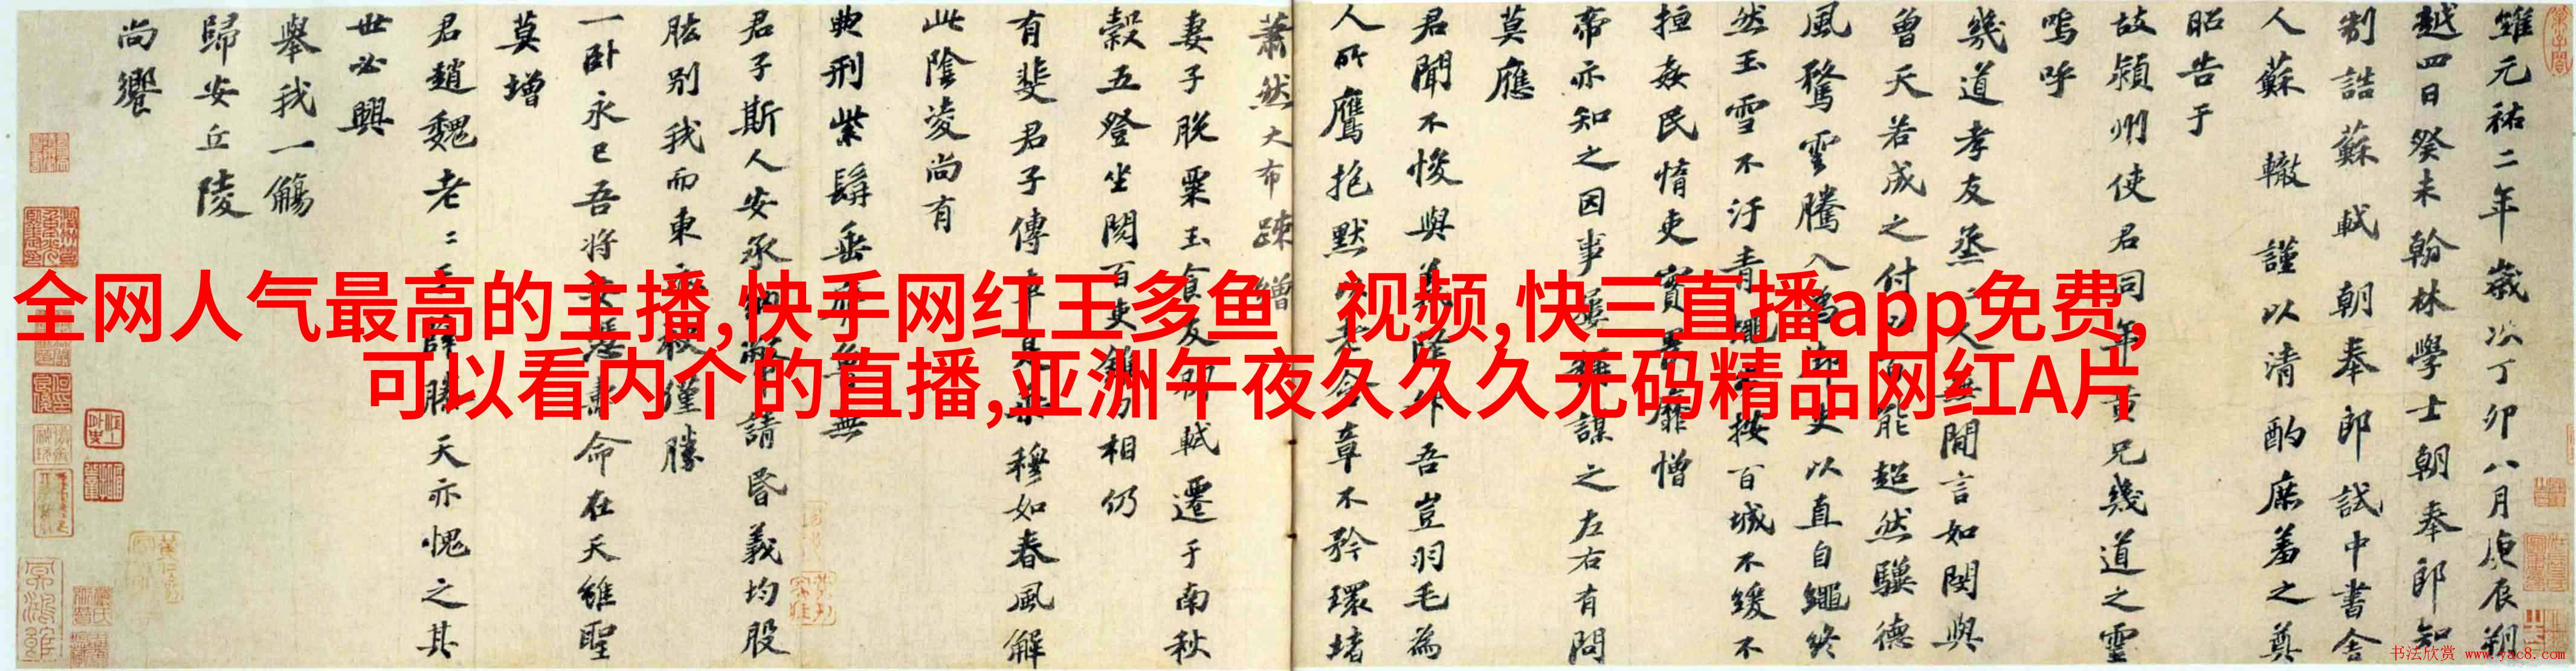 維元祐二年歲次丁卯八月庚辰朔
越四日癸未翰林學士朝奉郎知
制誥蘇軾朝奉郎試中書舍
人蘇轍謹以清酌庶羞之奠
昭告于
故潁州使君同年黃兄幾道之靈
嗚呼
幾道孝友烝
人無間言如閔與
曾天若成之付
能超然驥德
風騖雲騰入
史以直自繩終
然玉雪不汙青
按百城不緩不
擅姦民惰吏實
靡憎
帝亦知之因事屢
謀之左右有問
莫應
君聞不悛與
吾豈羽毛為
人所鷹抱默
章不矜環堵
蕭然大布疎繒
妻子脫粟玉食友
軾遷于南秋
穀五登坐閱百吏
相仍
有斐君子傳
穆如春風解
此陰凌尚有
典刑紫髯垂
君子斯人安承
請昏義均股
肱别我而東
僅勝
一卧永已吾將
命在天維聖
莫增
君趙魏老
勝天亦愧之其
世必興
舉我一觴
歸安丘陵
尚饗
全网人气最高的主播,快手网红王多鱼 视频,快三直播app免费,
可以看内个的直播,亚洲午夜久久久无码精品网红A片
书法欣赏 www.yac8.com